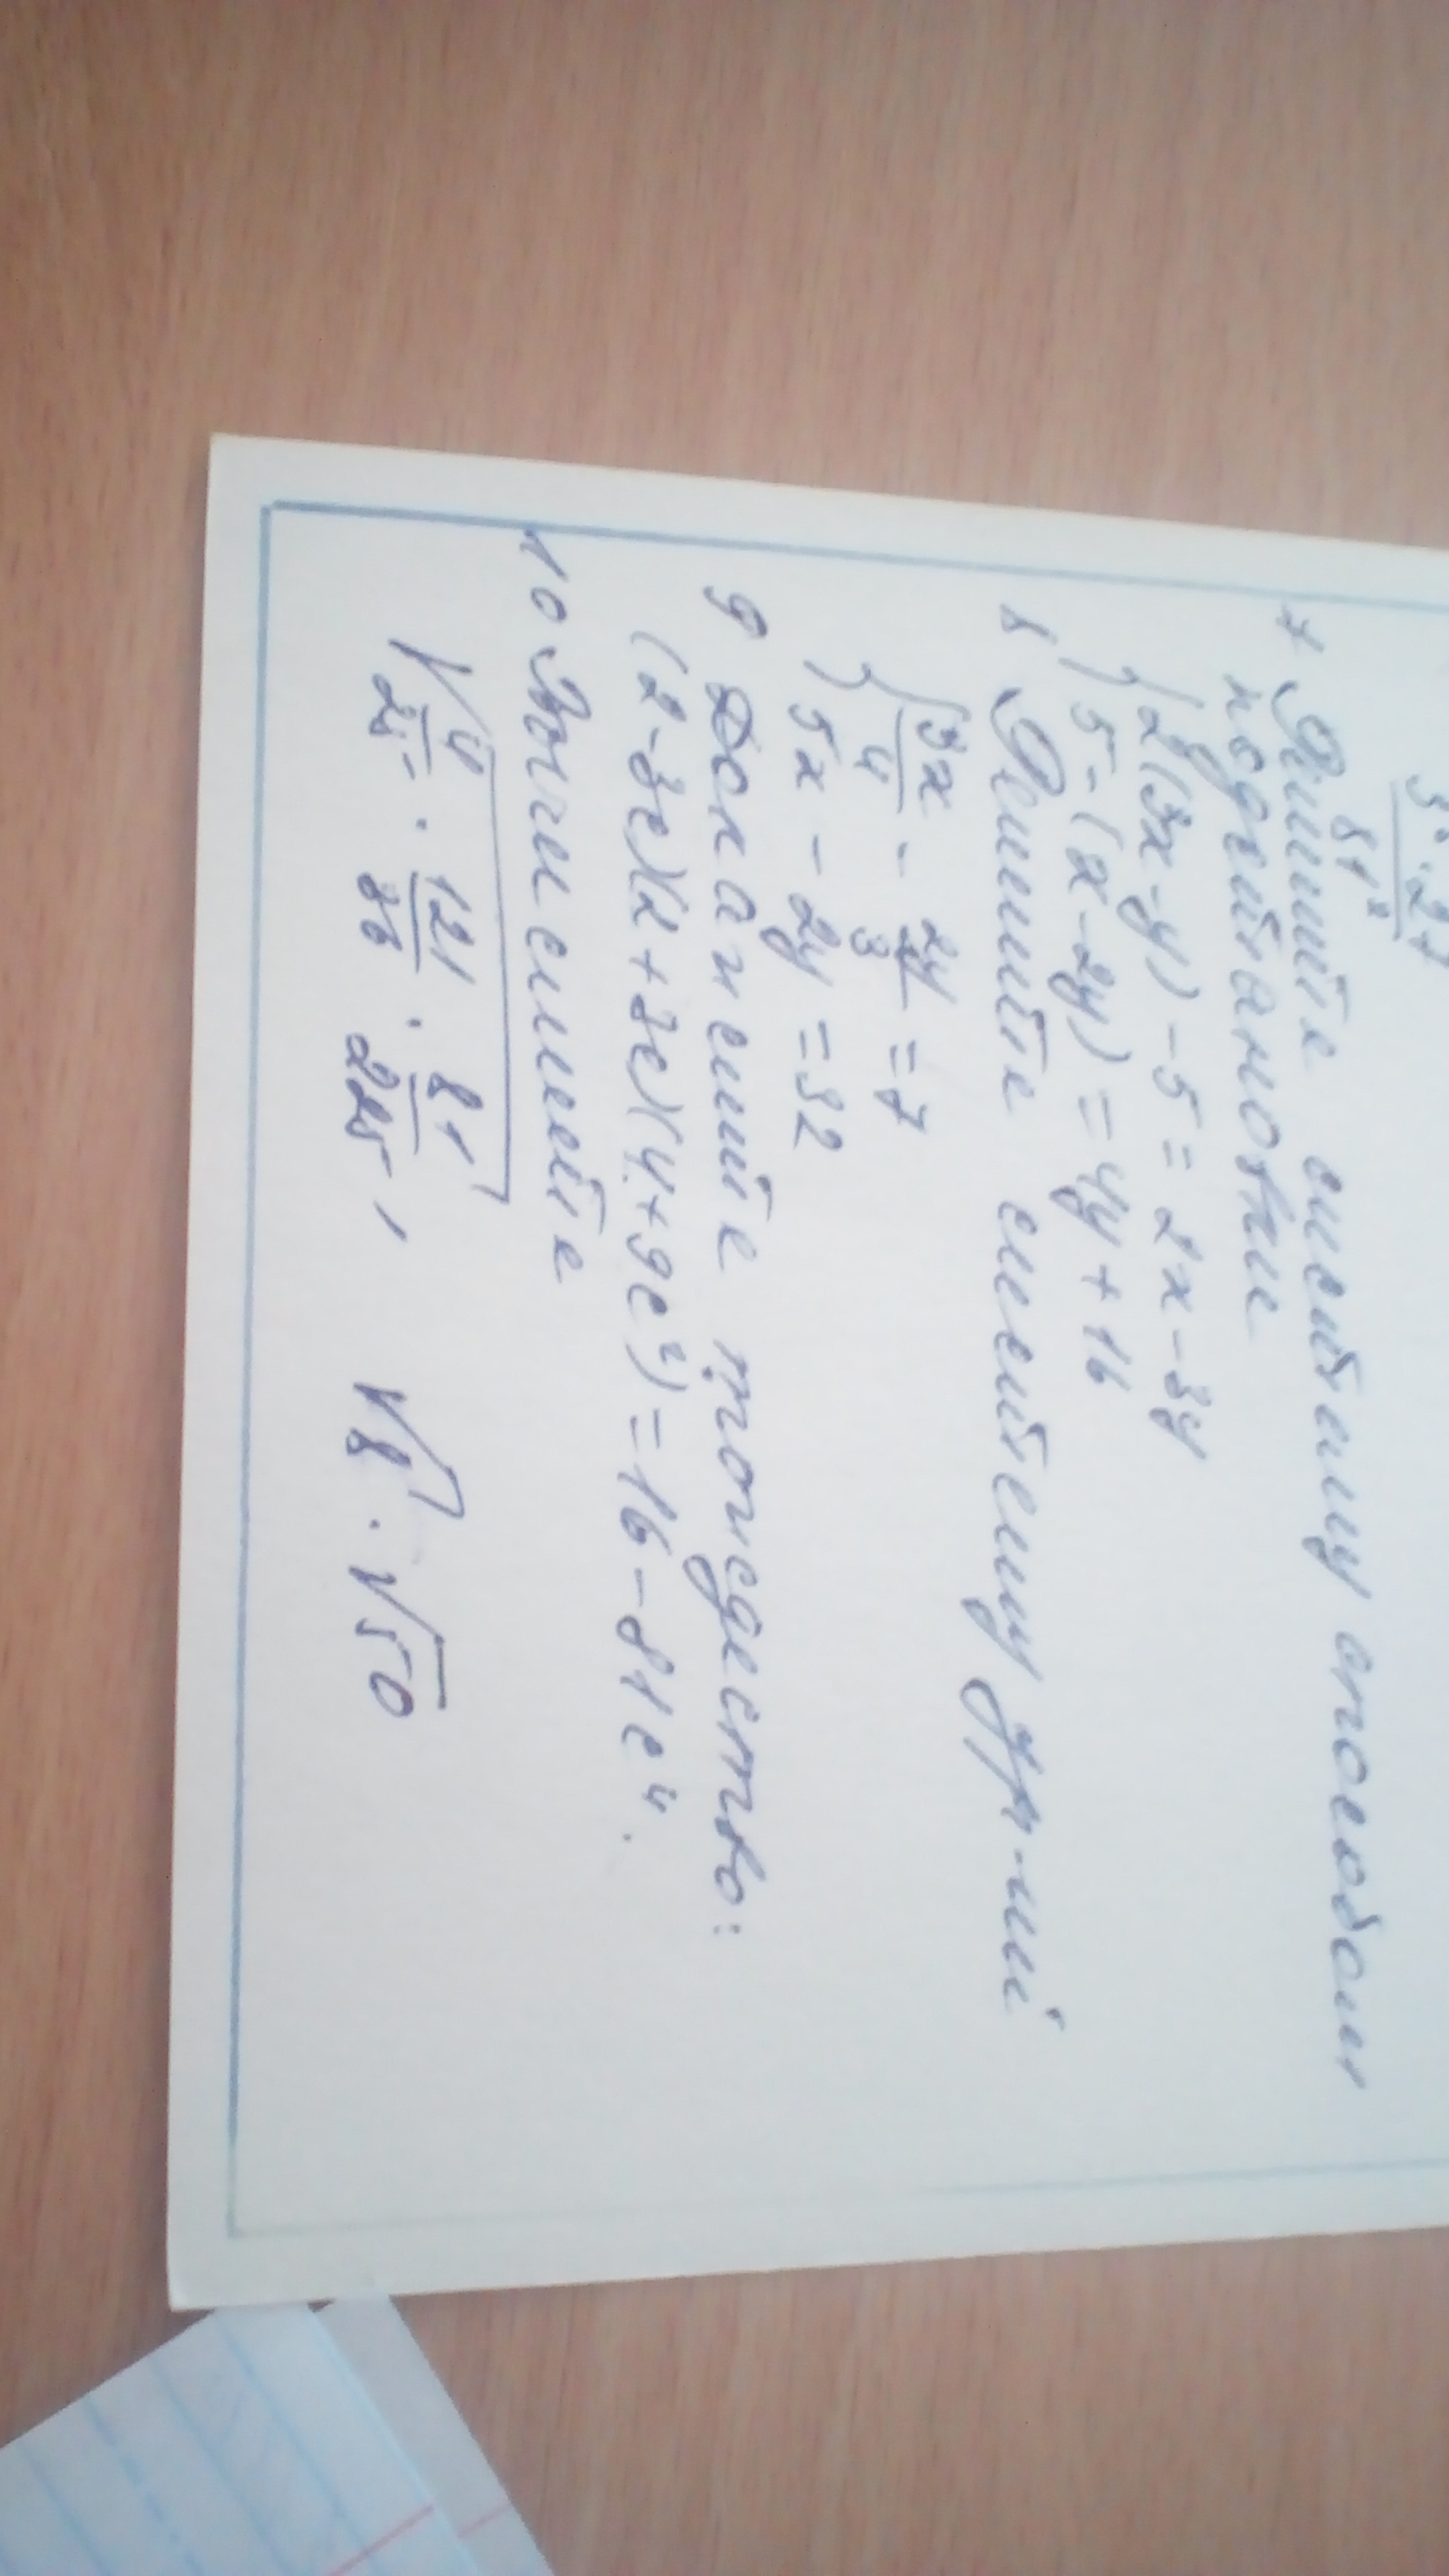 3 · 27
81²
7 Решите систему способом
подстановки
{2(3x-y)-5=2x-3y
5-(x-2y)=4y+16
8 Решите систему ур-ний
{3x/4 - 2y/3 = 7
5x-2y=32
9 Докажите тождество:
(2-3c)(2+3c)(4+9c²)=16-81c⁴.
10 Вычислите
√4/25 · 121/36 · 81/225 , √8 · √50